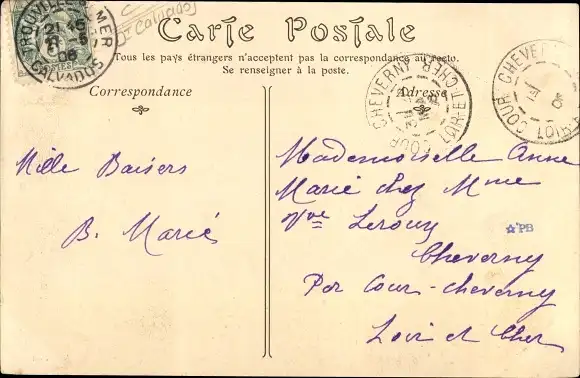 TROUVILLE S MER
CALVADOS
(Calvados)
Carte Postale
Tous les pays étrangers n'acceptent pas la correspondance au recto.
Se renseigner à la poste.
COUR CHEVERNY
LOIR-ET-CHER
COUR CHEVERNY
Correspondance
Adresse
Mille Baisers
B. Marié
Mademoiselle Anne
Marie chez Mme
Vve Leroux
Cheverny
Par Cour-cheverny
Loir et Cher
PB